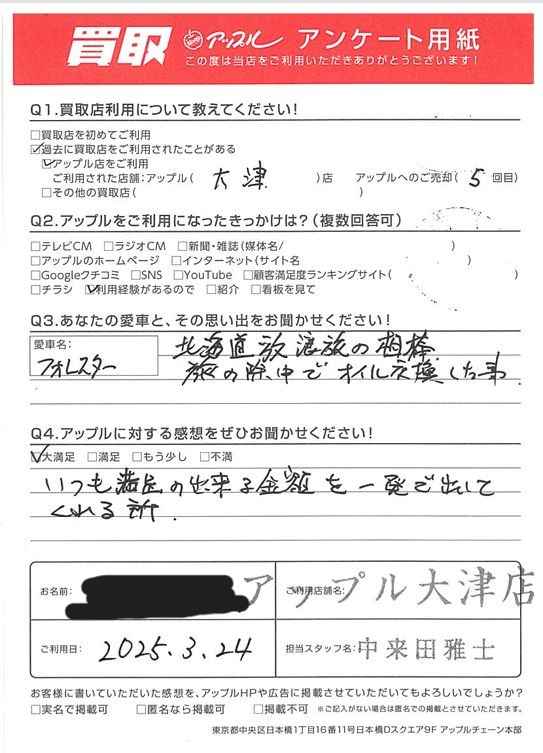 買取 アップル アンケート用紙
この度は当店をご利用いただきありがとうございます!
Q1.買取店利用について教えてください!
□買取店を初めてご利用
☑過去に買取店をご利用されたことがある
☑アップル店をご利用
ご利用された店舗:アップル( 大津 )店 アップルへのご売却( 5 回目)
□その他の買取店( )
Q2.アップルをご利用になったきっかけは?(複数回答可)
□テレビCM □ラジオCM □新聞・雑誌(媒体名/ )
□アップルのホームページ □インターネット(サイト名 )
□Googleクチコミ □SNS □YouTube □顧客満足度ランキングサイト( )
□チラシ ☑利用経験があるので □紹介 □看板を見て
Q3.あなたの愛車と、その思い出をお聞かせください!
愛車名:
フォレスター
北海道放浪旅の相棒
旅の際、中でオイル交換した事
Q4.アップルに対する感想をぜひお聞かせください!
☑大満足 □満足 □もう少し □不満
いつも満足の出来る金額を一発で出して
くれる所.
お名前:
ご利用店舗名:
アップル大津店
ご利用日: 2025.3.24
担当スタッフ名: 中来田雅士
お客様に書いていただいた感想を、アップルHPや広告に掲載させていただいてもよろしいでしょうか?
□実名で掲載可 □匿名なら掲載可 □掲載不可 ※ご記入がない場合は匿名での掲載とさせていただきます。
東京都中央区日本橋1丁目16番11号日本橋Dスクエア9F アップルチェーン本部